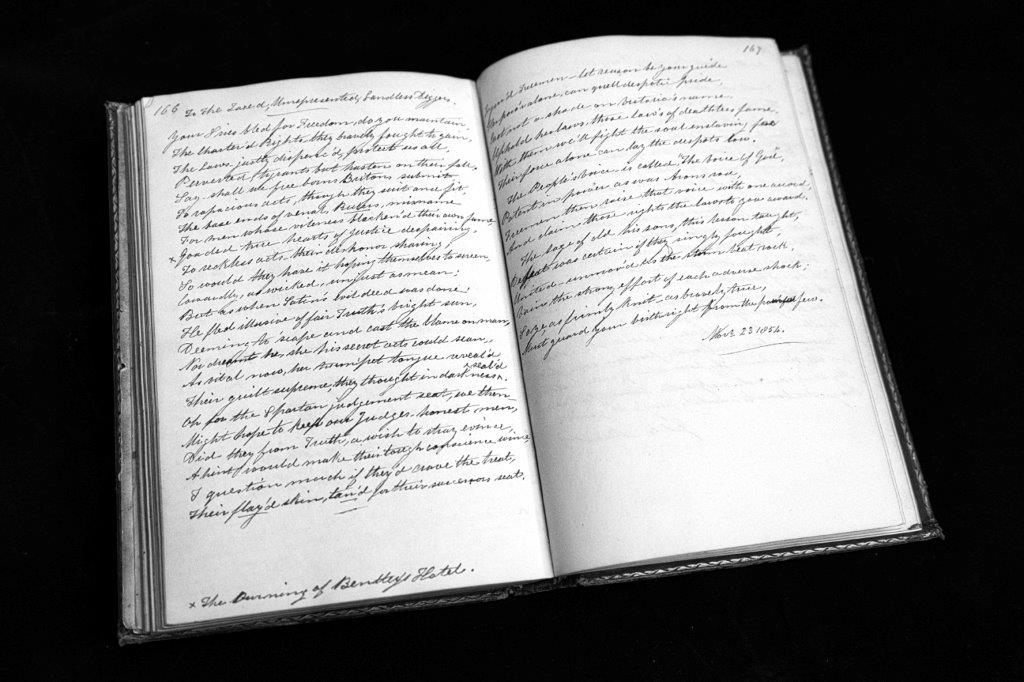 166
To The Taxed, Unrepresented, Landless Diggers.
Your Sires bled for Freedom, do you maintain,
The Charter'd Rights, they bravely fought to gain,
The Laws justly dispens'd, protects us all,
Perverted, Tyrants but hasten on their fall,
Say, shall we free born Britons submit
To rapacious acts, though they suit and fit,
The base ends of venal Rulers, misname
For men whose vileness blacken'd their own fame,
x Goaded true hearts of Justice despairing,
To reckless acts, their dishonor sharing
So would they have it hoping themselves to screen
Cowardly, as wicked, unjust as mean;
But as when Satin's evil deed was done
He fled illusive of fair Truth's bright sun,
Deeming to 'scape and cast the blame on man,
Nor dreamt he, she his secret acts could scan,
As vital now, her trumpet tongue reveal'd
Their guilt supreme, they thought in darkness seal'd.
Oh for the Spartan judgement seat, we then
Might hope to keep our Judges honest men,
Did they from Truth, a wish to stray evince,
A hint would make their tough conscience wince
I question much if they'd crave the treat,
Their flay'd skin, tan'd for their successors seat.
x The Burning of Bentley's Hotel.
167
Freemen let reason be your guide
alone, can quell despotic Pride
not a shade on Victoria's name,
Uphold her laws, those laws of deathless fame,
With them we'll fight the soul enslaving foe
Their force alone can lay the despots low.
The People's voice is called "The Voice of God",
Potent in power as was Arons rod,
Freemen then raise that voice with one accord,
And claim those rights the laws to you award.
The Sage of old his sons, this lesson taught,
Defeat was certain if they singly fought,
United unmov'd as the storm beat rock,
Vain the strong effort of each adverse shock;
Sage as firmly knit as bravely true,
Must guard your birthright from the few.
Nov. 23 1854.